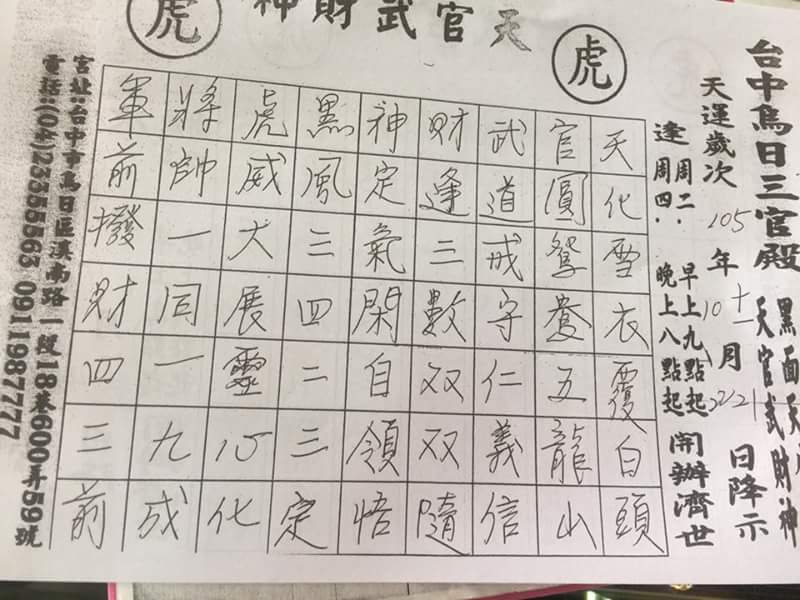 虎 天官武財神 虎
台中烏日三官殿 黑面天
天官武財神
天運歲次105年十一月
日降示
逢周二 早上九點起
周四 晚上八點起
開辦濟世
天化雪衣覆白頭
官圓鴛鴦五龍山
武道戒守仁義信
財逢三數双双隨
神定氣閑自領悟
黑風三四二三定
虎威大展靈心化
將帥一同一九成
軍前撥財四三前
宮址:台中市烏日區溪南路一段18巷600弄59號
電話:(04)23355563 0911987777